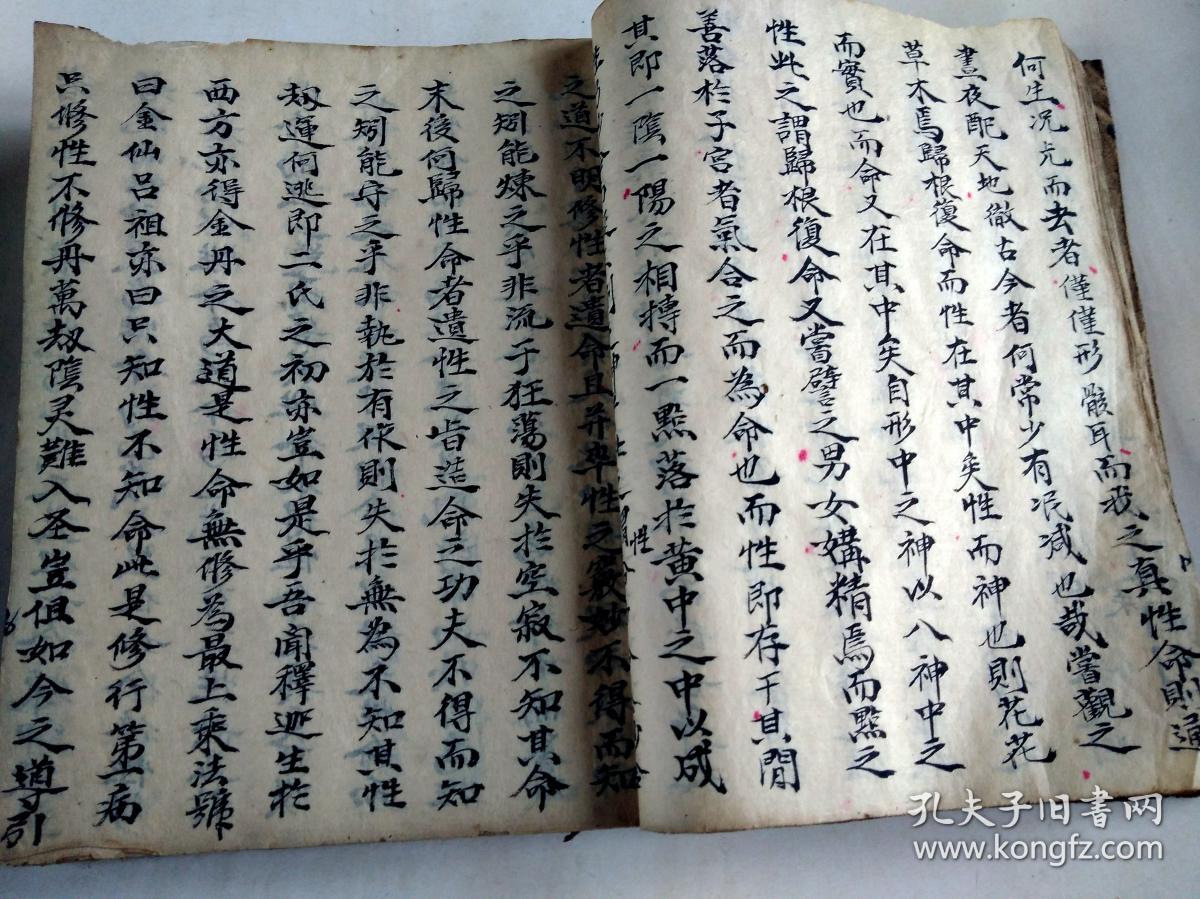 何生況尤而去者僅僅形骸耳而我之真性命則通
晝夜配天地徹古今者何常少有泯滅也哉嘗觀之
草木焉歸根復命而性在其中矣性而神也則花花
而實也而命又在其中矣自形中之神以入神中之
性此之謂歸根復命又嘗譬之男女媾精焉而點之
善落於子宮者氣合之而為命也而性即存于其間
其即一陰一陽之相摶而一點落於黃中之中以成
性
之道不明修性者遺命且并率性之竅妙不得而知
之矧能煉之乎非流于狂蕩則失於空寂不知其命
末後何歸性命者遺性之旨造命之功夫不得而知
之矧能守之乎非執於有作則失於無為不知其性
刼運何逃即二氏之初亦豈如是乎吾聞釋迦生於
西方亦得金丹之大道是性命無修為最上乘法號
曰金仙呂祖亦曰只知性不知命此是修行第一病
只修性不修丹萬刼陰灵難入圣豈但如今之導引
孔夫子旧书网
www.kongfz.com